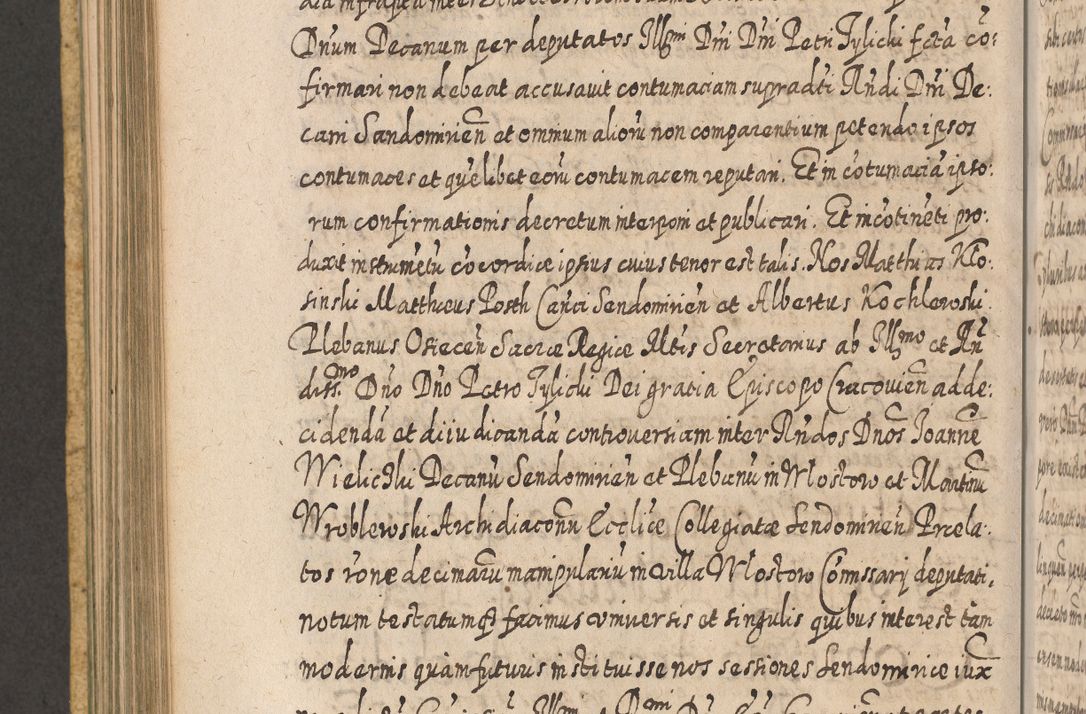 Dnum Decanum per deputatos Illmi Dni Dni Petri Tylicki fcta cō:
firmari non debeat accusavit contumaciam supradti Rndi Dni De:
cani Sandomirien̄ et omnium alioru̅ non comparentium petendo ipsos
contumaces et que̅libet eoru̅ contumacem reputari. Et in co̅tumacia̅ ipso:
rum confirmationis decretum interponi et publicari. Et in co̅tine̅ti pro:
duxit instrume̅tu̅ co̅cordiæ ipsius cuius tenor est talis. Nos Matthias Klo:
sinski Mattheus Posth Canci Sendomirien̄ et Albertus Kochlewski
Plebanus Osiecen̄ Sacræ Regiæ Mtis Secretarius ab Illmo et Rn̄
diss.mo Dn̄o Dn̄o Petro Tylicki Dei gratia Episcopo Cracovien̄ ad de:
cidenda̅ et diiudicanda̅ controversiam inter Rndos Dnos Joanne̅
Wielicski Decanu̅ Sendomirien̄ et Plebanu̅ in Wlostow et Martinu̅
Wroblewski Archidiaconu̅ Eccliæ Collegiatæ Sendomirien̄ Præla:
tos ro̅ne decimaru̅ manipulariu̅ in villa Wlostow Co̅missarij deputati,
notum testatumq̄ facimus universis et singulis quibus interest tam
modernis quàm futuris instituisse nos sessiones Sendomiriæ iux̅